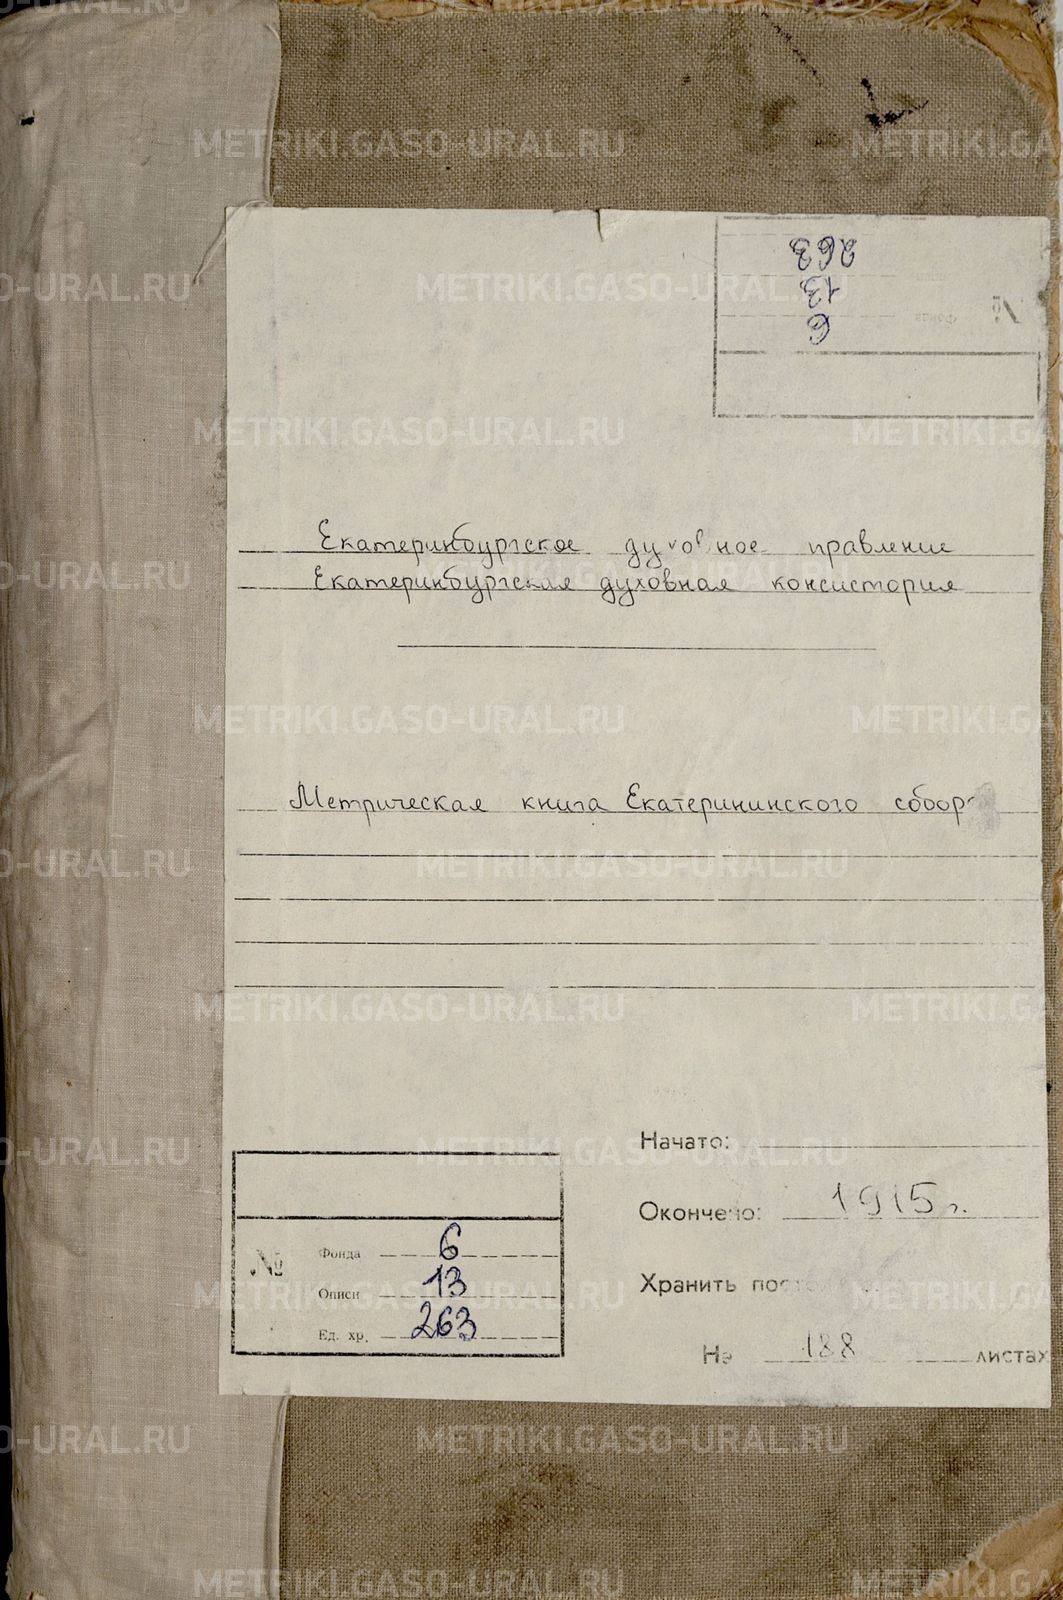 263
13
6
№ Фонда
Екатеринбургское духовное правление
Екатеринбургская духовная консистория
Метрическая книга Екатерининского собора
Начато:
Окончено: 1915 г.
Хранить
На 188 листах
№
Фонда 6
Описи 13
Ед. хр. 263
METRIKI.GASO-URAL.RU